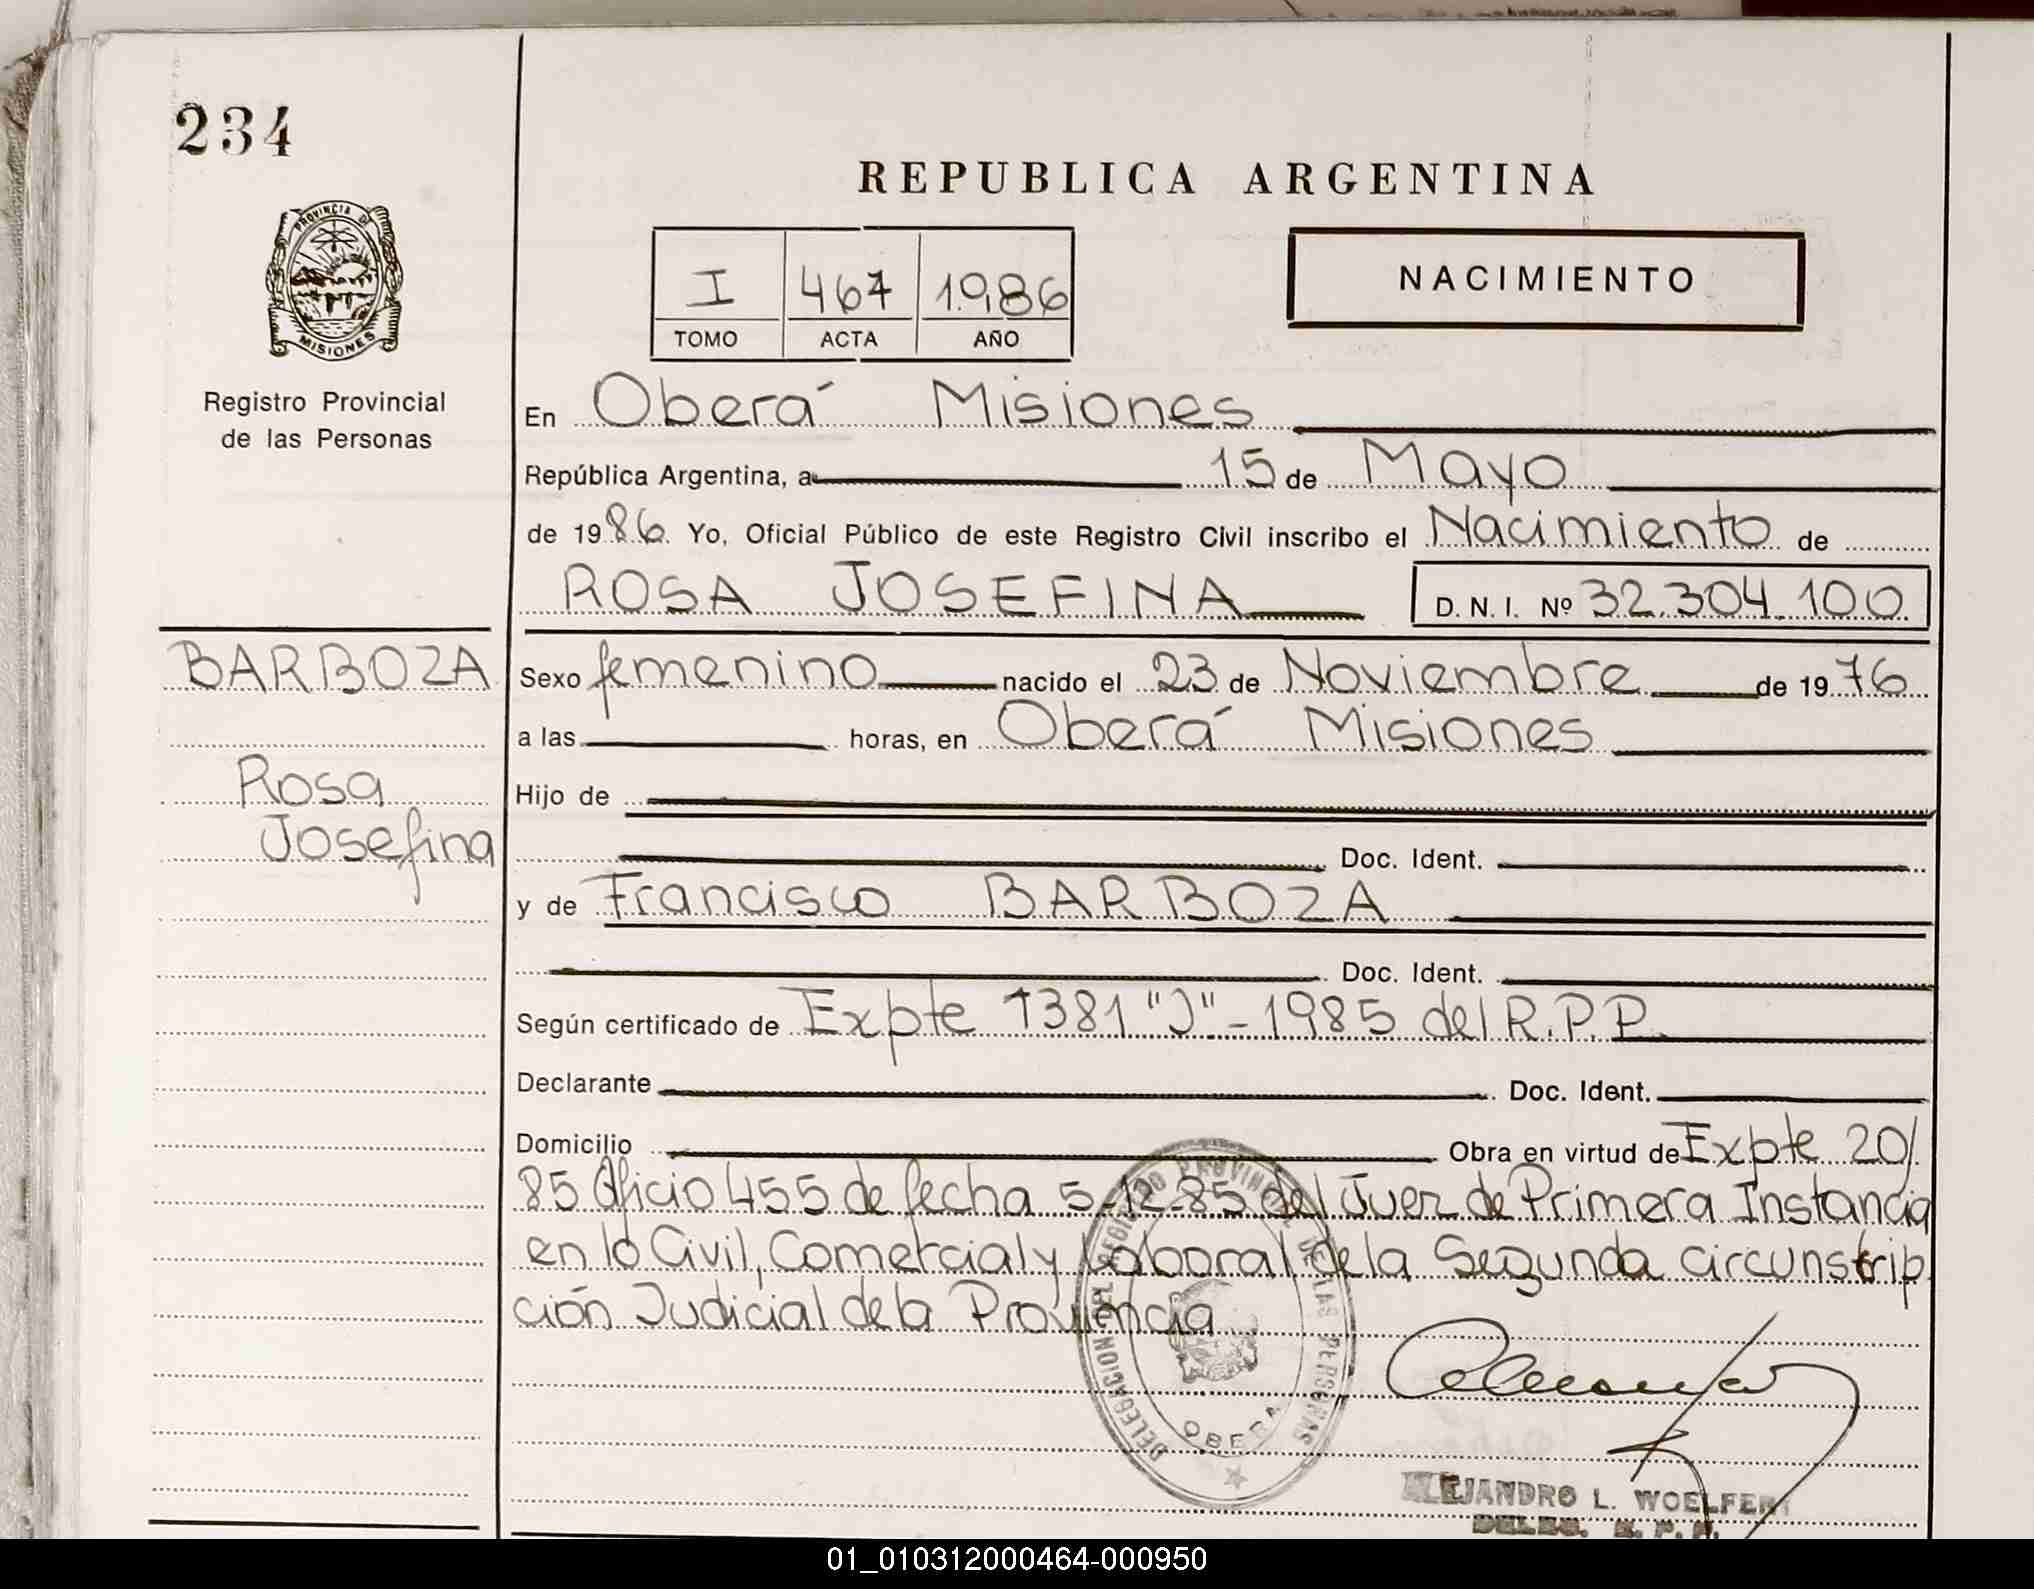 234
REPUBLICA ARGENTINA
PROVINCIA DE
MISIONES
I 467 1986
TOMO ACTA AÑO
NACIMIENTO
Registro Provincial
de las Personas
En Oberá Misiones
República Argentina, a 15 de Mayo
de 1986. Yo, Oficial Público de este Registro Civil inscribo el Nacimiento de
ROSA JOSEFINA D. N. I. Nº 32.304.100
BARBOZA
Rosa
Josefina
Sexo femenino nacido el 23 de Noviembre de 1976
a las horas, en Oberá Misiones
Hijo de
Doc. Ident.
y de Francisco BARBOZA
Doc. Ident.
Según certificado de Expte 1381 "J" - 1985 del R.P.P.
Declarante . Doc. Ident.
Domicilio Obra en virtud de Expte 20/
85 Oficio 455 de fecha 5-12-85 del Juez de Primera Instancia
en lo Civil, Comercial y Laboral de la Segunda circunstrip
ción Judicial de la Provincia
DELEGACION DEL REGISTRO PROVINCIAL DE LAS PERSONAS
OBERA
ALEJANDRO L. WOELFERT
DELEG. R. P. P.
01_010312000464-000950